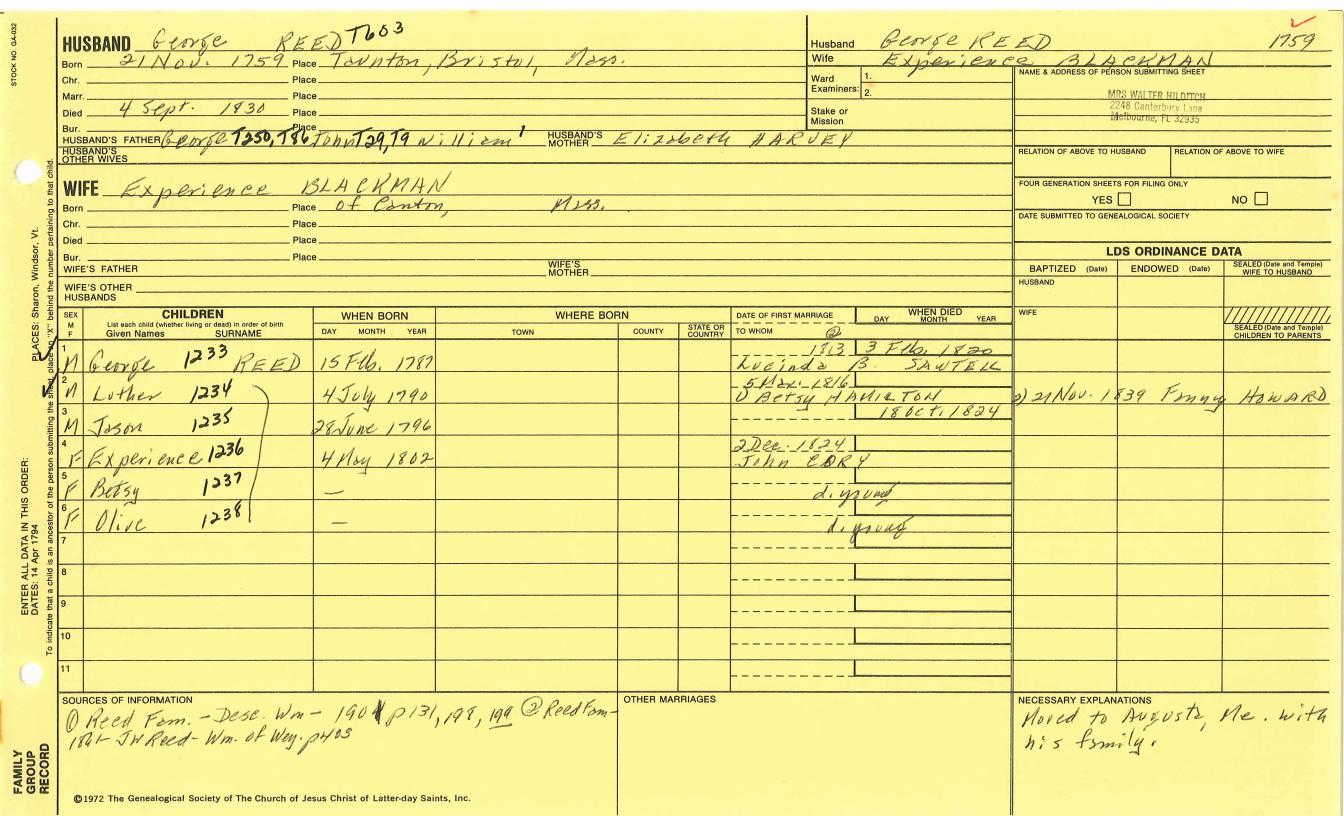 STOCK NO. GA-032
HUSBAND George REED T603
Born 21 Nov. 1759 Place Taunton, Bristol, Mass.
Chr. Place
Marr. Place
Died 4 Sept. 1830 Place
Bur. Place
HUSBAND'S FATHER George T250, T86 John T29, T9 William¹ HUSBAND'S MOTHER Elizabeth HARVEY
HUSBAND'S OTHER WIVES
Husband George REED 1759
Wife Experience BLACKMAN
Ward Examiners: 1.
2.
Stake or Mission
NAME & ADDRESS OF PERSON SUBMITTING SHEET
MRS WALTER HILDITCH
2248 Canterbury Lane
Melbourne, FL 32935
RELATION OF ABOVE TO HUSBAND RELATION OF ABOVE TO WIFE
FOUR GENERATION SHEETS FOR FILING ONLY
YES NO
DATE SUBMITTED TO GENEALOGICAL SOCIETY
WIFE Experience BLACKMAN
Born Place of Canton, Mass.
Chr. Place
Died Place
Bur. Place
WIFE'S FATHER WIFE'S MOTHER
WIFE'S OTHER HUSBANDS
LDS ORDINANCE DATA
BAPTIZED (Date) ENDOWED (Date) SEALED (Date and Temple) WIFE TO HUSBAND
HUSBAND
WIFE
SEALED (Date and Temple) CHILDREN TO PARENTS
SEX M F
CHILDREN
List each child (whether living or dead) in order of birth
Given Names SURNAME
WHEN BORN
DAY MONTH YEAR
WHERE BORN
TOWN COUNTY STATE OR COUNTRY
DATE OF FIRST MARRIAGE
TO WHOM
WHEN DIED
DAY MONTH YEAR
②
1 M George 1233 REED 15 Feb. 1787 1813 3 Feb. 1820
Lucinda B. SAWTELL
2 M Luther 1234 4 July 1790 5 Mar. 1816
1) Betsy HAMILTON 2) 21 Nov. 1839 Fanny HOWARD
3 M Jason 1235 28 June 1796 18 Oct. 1824
4 F Experience 1236 4 May 1802 2 Dec. 1824
John CORY
5 F Betsy 1237 — d. young
6 F Olive 1238 — d. young
7
8
9
10
11
SOURCES OF INFORMATION
① Reed Fam. - Desc. Wm - 1901 p131, 198, 199 ② Reed Fam-
1861- JW Reed- Wm. of Wey. p403
OTHER MARRIAGES
NECESSARY EXPLANATIONS
Moved to Augusta, Me. with
his family.
©1972 The Genealogical Society of The Church of Jesus Christ of Latter-day Saints, Inc.
FAMILY GROUP RECORD
ENTER ALL DATA IN THIS ORDER:
DATES: 14 Apr 1794 PLACES: Sharon, Windsor, Vt.
To indicate that a child is an ancestor of the person submitting the sheet, place an "X" behind the number pertaining to that child.